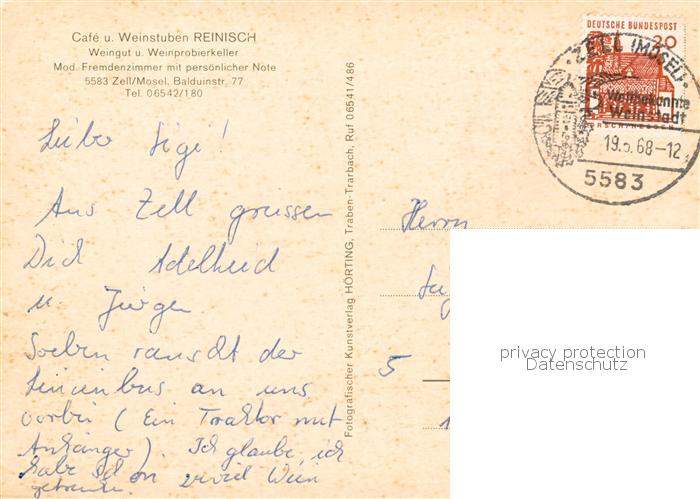 Café u. Weinstuben REINISCH
Weingut u. Weinprobierkeller
Mod. Fremdenzimmer mit persönlicher Note
5583 Zell/Mosel, Balduinstr. 77
Tel. 06542/180
Lieber Sigi!
Aus Zell grüssen
Dich Adelheid
u. Jürgen
Soeben rauscht der
Linienbus an uns
vorbei (Ein Traktor mit
Anhänger). Ich glaube, ich
habe schon zuviel Wein
getrunken.
Fotografischer Kunstverlag HÖRTING, Traben-Trarbach, Ruf 06541/486
DEUTSCHE BUNDESPOST
20
ZELL (MOSEL)
Weltbekannte
Weinstadt
19.5.68-12
5583
Herrn
5
privacy protection
Datenschutz